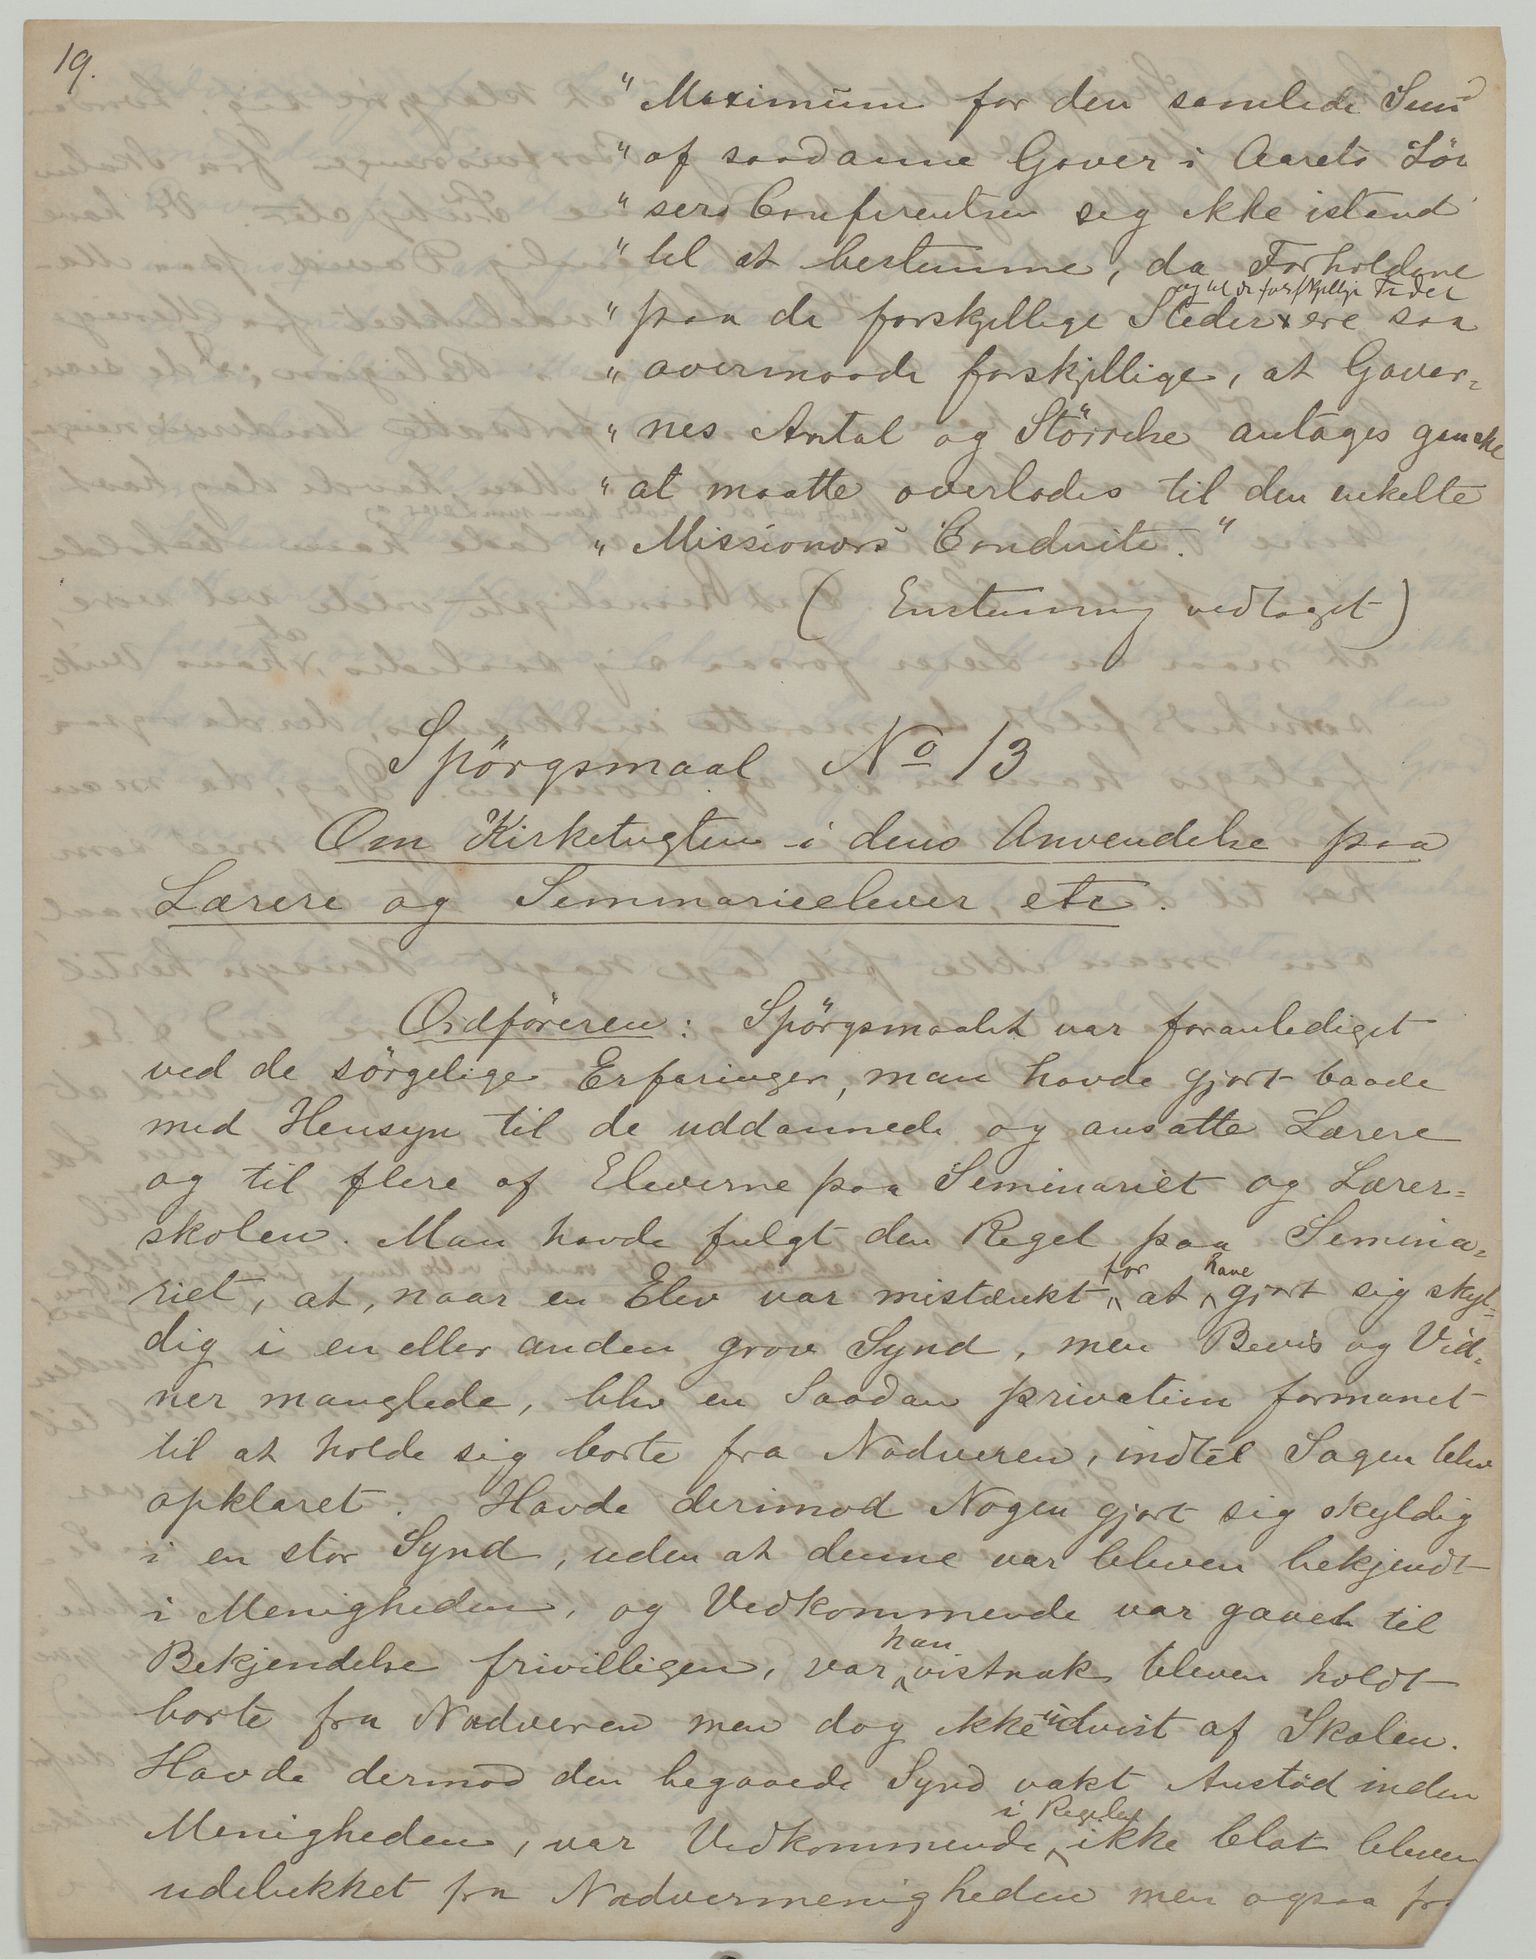 19.
"Maximum for den samlede Sum
"af saadanne Gaver i Aarets Löb
"ser Conferentsen sig ikke istand
"til at bestemme, da Forholdene
og til de forskjellige Tider
"paa de forskjellige Steder x ere saa
"overmaade forskjellige, at Gaver-
"nes Antal og Störrelse antages ganske
"at maatte overlades til den enkelte
"Missionærs Conduite."
(Enstemmig vedtaget)
Spörgsmaal No 13
Om Kirketugten i dens Anvendelse paa
Lærere og Seminarieelever, etc.
Ordföreren: Spörgsmaalet var foranlediget
ved de sörgelige Erfaringer, man havde gjort baade
med Hensyn til de uddannede og ansatte Lærere
og til flere af Eleverne paa Seminariet og Lærer-
skolen. Man havde fulgt den Regel paa Semina-
for have
riet, at, naar en Elev var mistænkt at gjort sig skyl-
dig i en eller anden grov Synd, men Bevis og Vid-
ner manglede, blev en Saadan privatim formanet
til at holde sig borte fra Nadveren, indtil Sagen blev
opklaret. Havde derimod Nogen gjort sig skyldig
i en stor Synd, uden at denne var bleven bekjendt
i Menigheden, og Vedkommende var gaaet til
han
Bekjendelse frivilligen, var vistnok bleven holdt
borte fra Nadveren men dog ikke udvist af Skolen.
Havde dermod den begaaede Synd vakt Anstöd inden
i Regelen
Menigheden, var Vedkommende ikke blot bleven
udelukket fra Nadvermenigheden men ogsaa fra